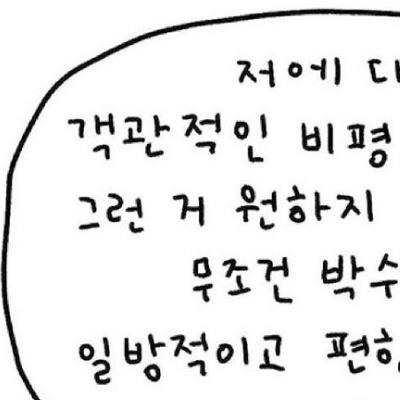 저에 다
객관적인 비평
그런 거 원하지
무조건 박수
일방적이고 편